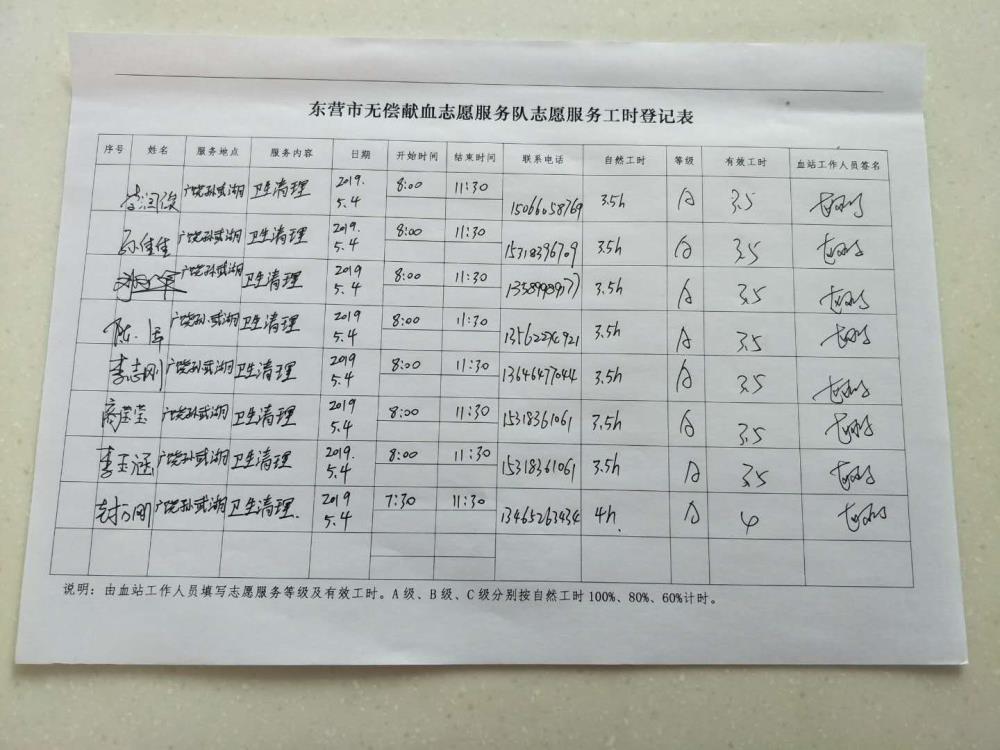 东营市无偿献血志愿服务队志愿服务工时登记表
序号 姓名 服务地点 服务内容 日期 开始时间 结束时间 联系电话 自然工时 等级 有效工时 血站工作人员签名
李润俊 广饶孙武湖 卫生清理 2019. 5.4 8:00 11:30 15066058769 3.5h A 3.5
孙佳佳 广饶孙武湖 卫生清理 2019 5.4 8:00 11:30 15318396709 3.5h A 3.5
广饶孙武湖 卫生清理 2019 5.4 8:00 11:30 3.5h A 3.5
广饶孙武湖 卫生清理 2019 5.4 8:00 11:30 3.5h A 3.5
李志刚 广饶孙武湖 卫生清理 2019 5.4 8:00 11:30 13646477044 3.5h A 3.5
广饶孙武湖 卫生清理 2019 5.4 8:00 11:30 15318361061 3.5h A 3.5
李玉涵 广饶孙武湖 卫生清理 2019. 5.4 8:00 11:30 15318361061 3.5h A 3.5
广饶孙武湖 卫生清理. 2019 5.4 7:30 11:30 13465263434 4h. A 4
说明：由血站工作人员填写志愿服务等级及有效工时。A级、B级、C级分别按自然工时100%、80%、60%计时。